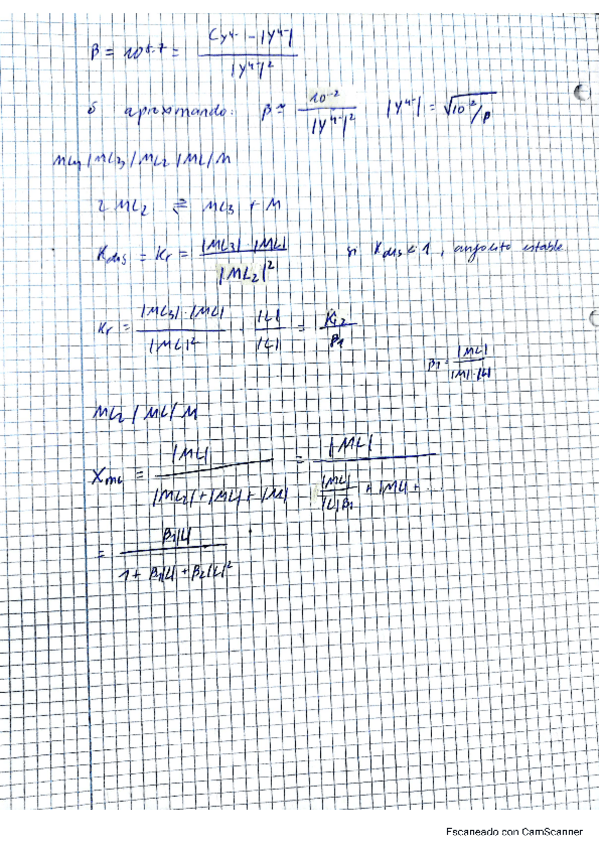 β = 10^8.7 = (Cy⁴⁻ - |Y⁴⁻|) / |Y⁴⁻|²
ó aproximando: β ≈ 10⁻² / |Y⁴⁻|² |Y⁴⁻| = √(10⁻²/β)
ML4 / ML3 / ML2 / ML / M
2 ML2 ⇌ ML3 + M
Kdis = Kr = |ML3| · |ML| / |ML2|² si Kdis < 1, anfolito estable
Kr = |ML3| · |ML| / |ML|² · |L| / |L| = K2 / β1
β1 = |ML| / |M| · |L|
ML2 / ML / M
XML = |ML| / |ML2| + |ML| + |M| = |ML| / |ML| / |L|β1 + |ML| + ..
= β1|L| / 1 + β1|L| + β2|L|²
Escaneado con CamScanner